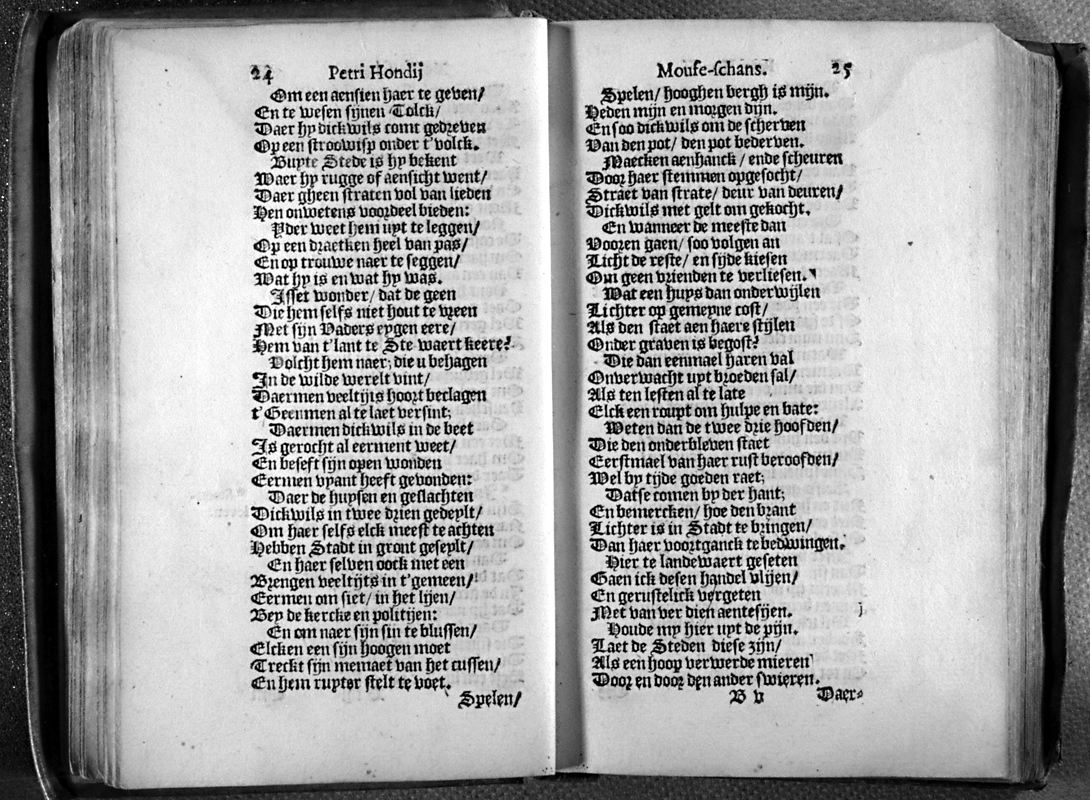 24 Petri Hondij
Om een aensien haer te geven/
En te wesen sijnen Tolck/
Daer hy dickwils comt gedreven
Op een stroowisp onder t'volck.
Buyte Stede is hy bekent
Waer hy rugge of aensicht went/
Daer gheen straten vol van lieden
Hen onwetens voordeel bieden:
Yder weet hem uyt te leggen/
Op een draetken heel van pas/
En op trouwe naer te seggen/
Wat hy is en wat hy was.
Isset wonder/ dat de geen
Die hem selfs niet hout te vreen
Met sijn Vaders eygen eere/
Hem van t'lant te Ste waert keere?
Volcht hem naer; die u behagen
In de wilde werelt vint/
Daermen veeltijts hoort beclagen
t'Geenmen al te laet versint;
Daermen dickwils in de beet
Is gerocht al eerment weet/
En beseft sijn open wonden
Eermen vyant heeft gevonden:
Daer de huysen en geslachten
Dickwils in twee drien gedeylt/
Om haer selfs elck meest te achten
Hebben Stadt in gront geseylt/
En haer selven oock met een
Brengen veeltijts in t'gemeen/
Eermen om siet/ in het lijen/
Bey de kercke en politijen:
En om naer sijn sin te blussen/
Elcken een sijn hoogen moet
Treckt sijn memaet van het cussen/
En hem ruyter stelt te voet.
Spelen/
Mouse-schans. 25
Spelen/ hooghen bergh is mijn.
Heden mijn en morgen dijn.
En soo dickwils om de scherven
Van den pot/ den pot bederven.
Maecken aenhanck/ ende scheuren
Door haer stemmen opgesocht/
Straet van strate/ deur van deuren/
Dickwils met gelt om gekocht.
En wanneer de meeste dan
Vooren gaen/ soo volgen an
Licht de reste/ en sijde kiesen
Om geen vrienden te verliesen.
Wat een huys dan onderwijlen
Lichter op gemeyne cost/
Als den staet aen haere stijlen
Onder graven is begost?
Die dan eenmael haren val
Onverwacht uyt broeden sal/
Als ten lesten al te late
Elck een roupt om hulpe en bate:
Weten dan de twee drie hoofden/
Die den onderbleven staet
Eerstmael van haer rust beroofden/
Wel by tijde goeden raet;
Datse comen by der hant;
En bemercken/ hoe den brant
Lichter is in Stadt te bringen/
Dan haer voortganck te bedwingen.
Hier te landewaert geseten
Gaen ick desen handel vlijen/
En gerustelick vergeten
Met van ver dien aentesijen.
Houde my hier uyt de pijn.
Laet de Steden diese zijn/
Als een hoop verwerde mieren
Door en door den ander swieren.
B v Daer-